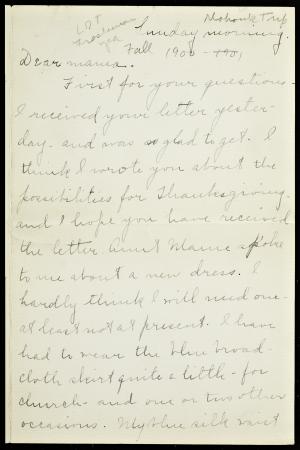 Mohonk Trip
L.D.T
Freshman
yea
Sunday morning.
Fall 1900 - 1901
Dear mama.
First for your questions-
I received your letter yester-
day- and was so glad to get. I
think I wrote you about the
possibilities for Thanksgiving.
and I hope you have received
the letter. Aunt Mame spoke
to me about a new dress. I
hardly think I will need one-
at least not at present. I have
had to wear the blue broad-
cloth skirt quite a little- for
church- and one or two other
occasions. My blue silk waist